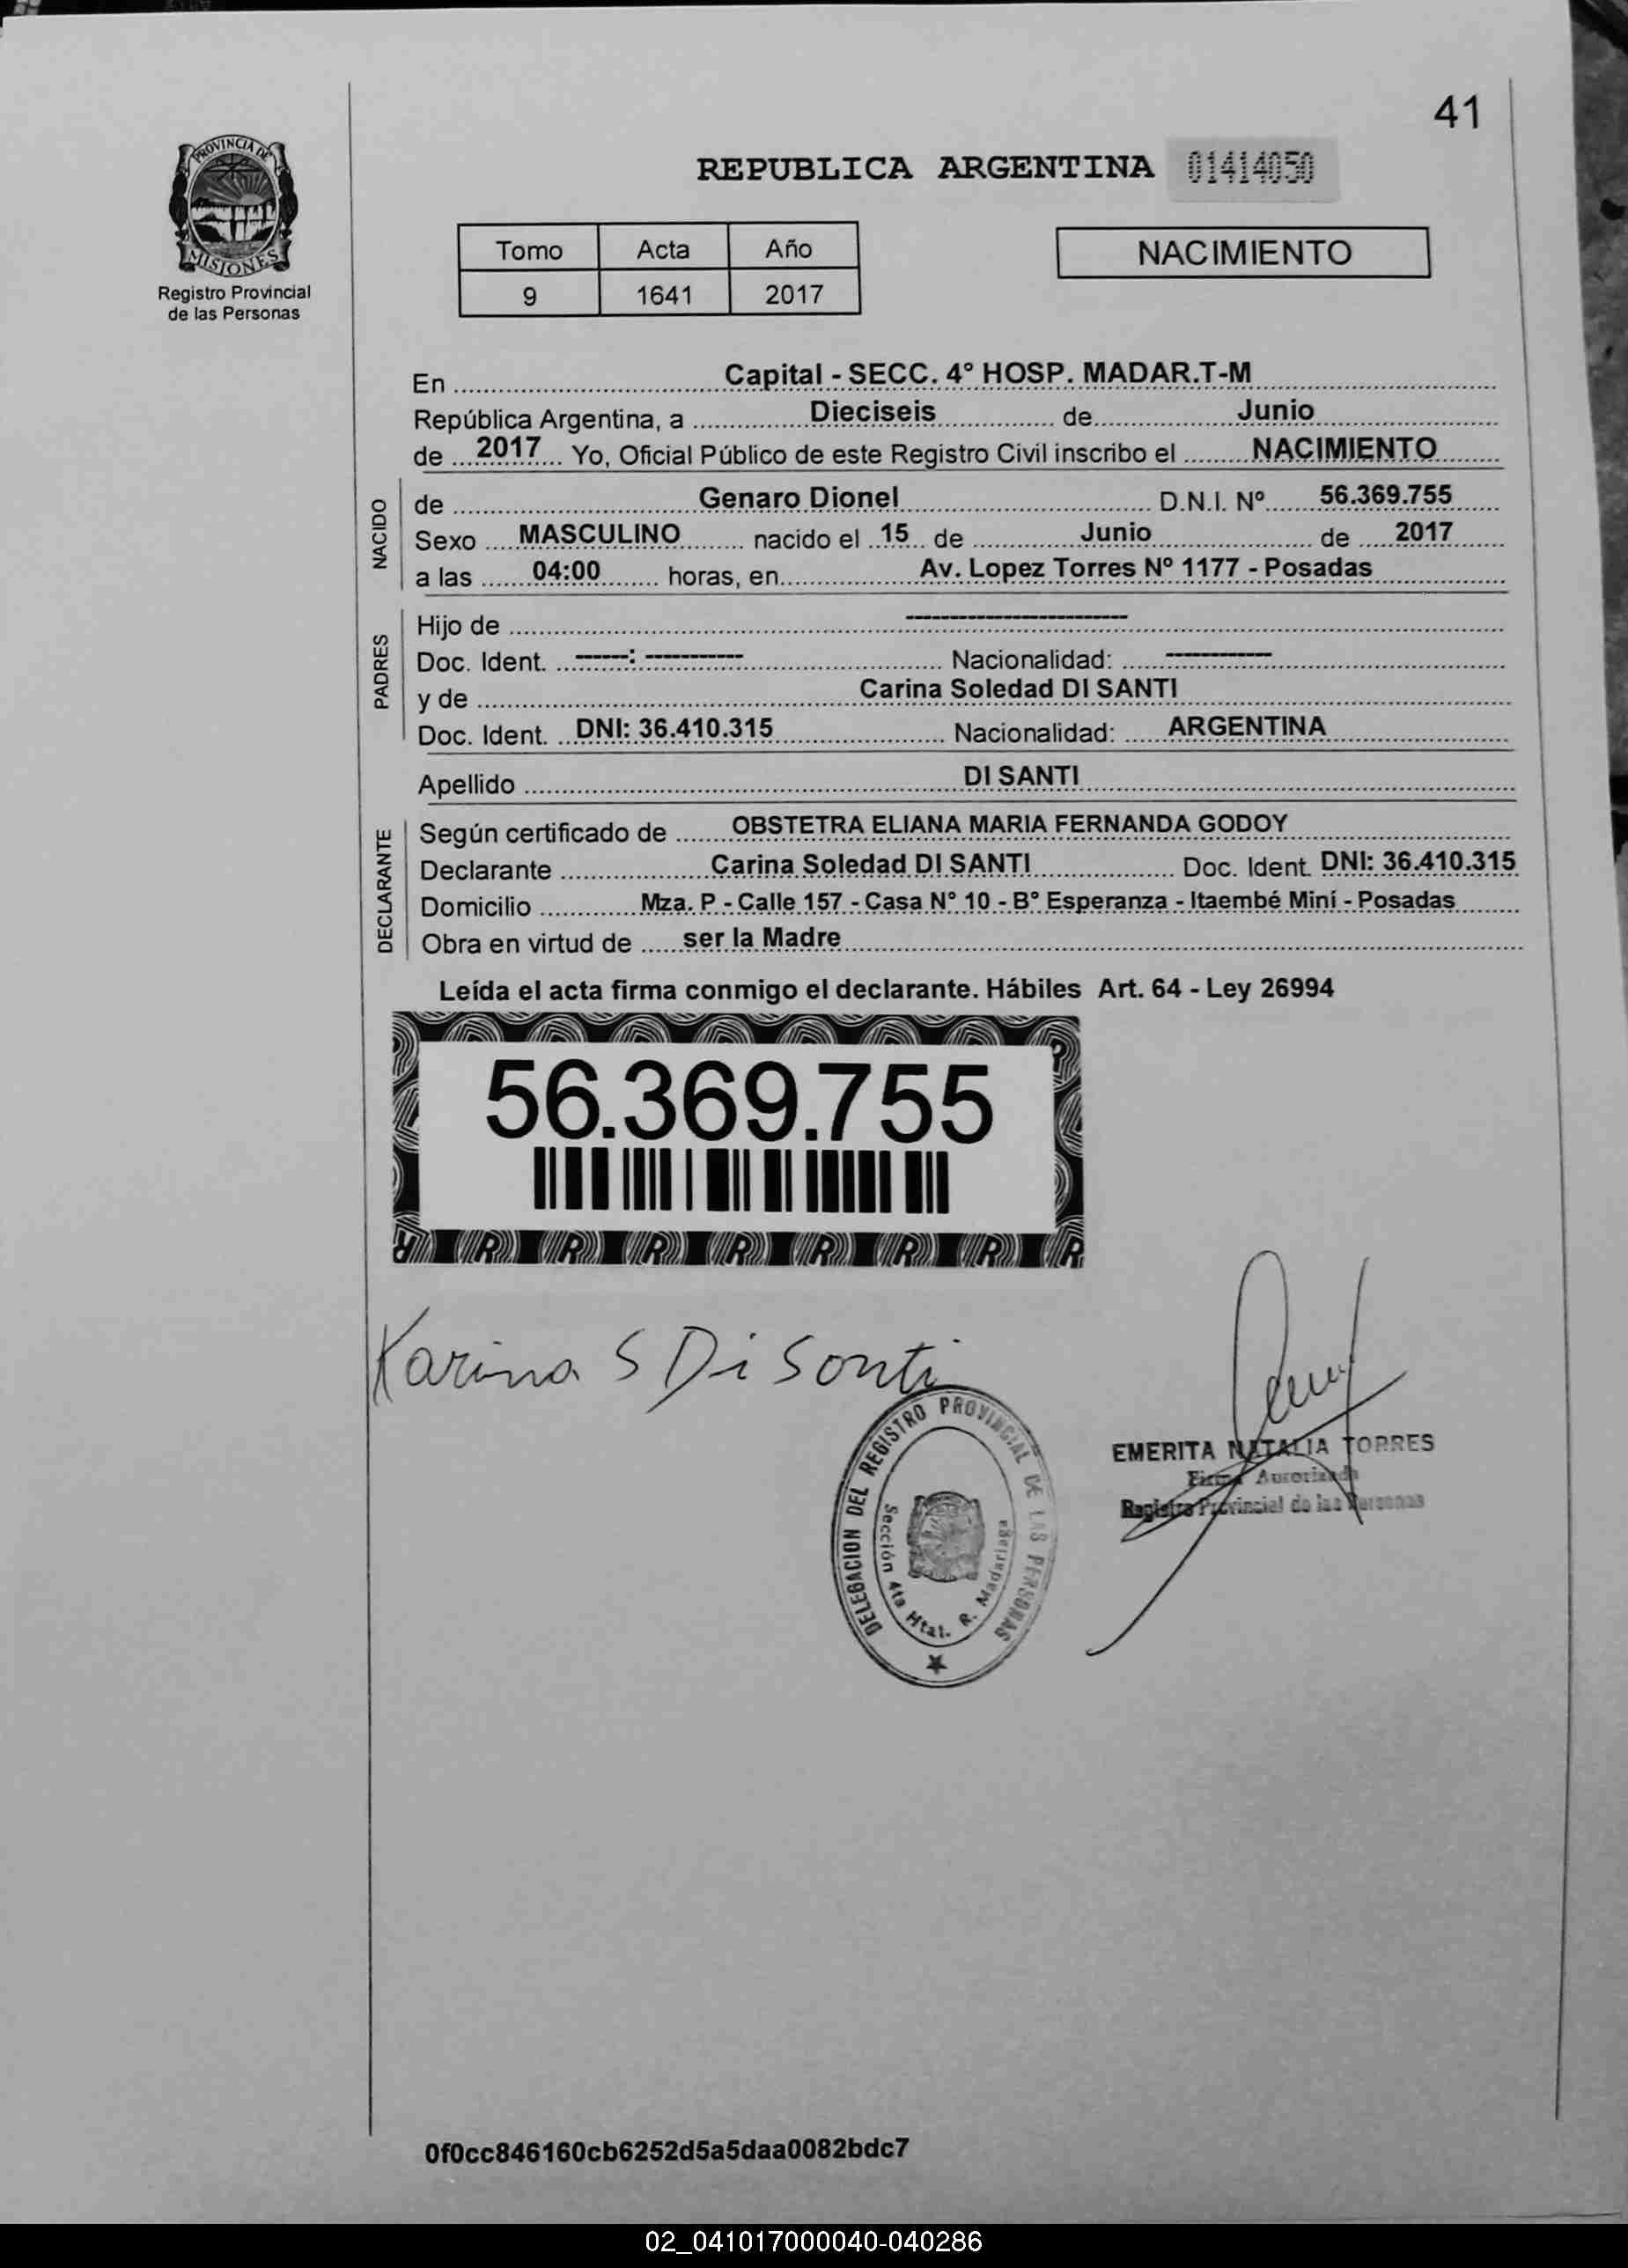 41
PROVINCIA DE
MISIONES
Registro Provincial
de las Personas
REPUBLICA ARGENTINA 01414050
Tomo Acta Año
9 1641 2017
NACIMIENTO
En Capital - SECC. 4° HOSP. MADAR.T-M
República Argentina, a Dieciseis de Junio
de 2017 Yo, Oficial Público de este Registro Civil inscribo el NACIMIENTO
NACIDO
de Genaro Dionel D.N.I. Nº 56.369.755
Sexo MASCULINO nacido el 15 de Junio de 2017
a las 04:00 horas, en Av. Lopez Torres Nº 1177 - Posadas
PADRES
Hijo de --------------------
Doc. Ident. ------: ----------- Nacionalidad: ------------
y de Carina Soledad DI SANTI
Doc. Ident. DNI: 36.410.315 Nacionalidad: ARGENTINA
Apellido DI SANTI
DECLARANTE
Según certificado de OBSTETRA ELIANA MARIA FERNANDA GODOY
Declarante Carina Soledad DI SANTI Doc. Ident. DNI: 36.410.315
Domicilio Mza. P - Calle 157 - Casa N° 10 - B° Esperanza - Itaembé Miní - Posadas
Obra en virtud de ser la Madre
Leída el acta firma conmigo el declarante. Hábiles Art. 64 - Ley 26994
56.369.755
Karina S Di Santi
DELEGACION DEL REGISTRO PROVINCIAL DE LAS PERSONAS
Sección 4ta Htal. R. Madariaga
EMERITA NATALIA TORRES
Firma Autorizada
Registro Provincial de las Personas
0f0cc846160cb6252d5a5daa0082bdc7
02_041017000040-040286